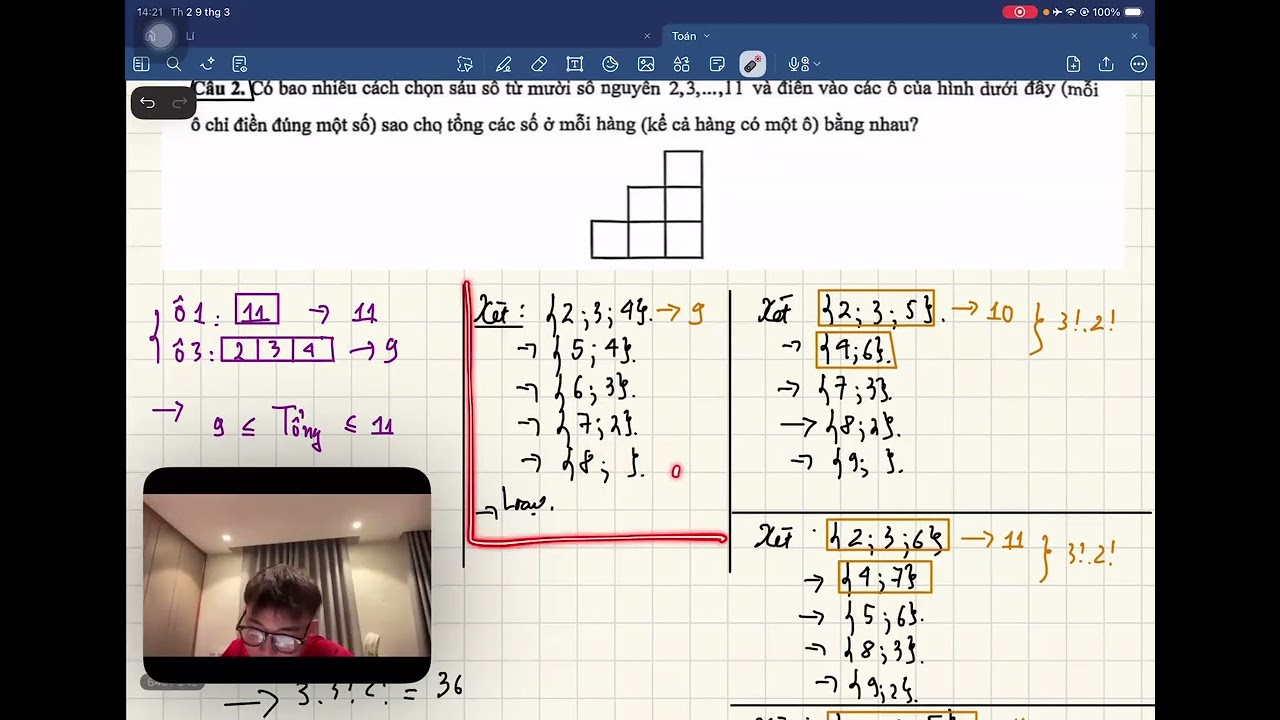 14:21 Th 2 9 thg 3
100%
Lí
Toán
Câu 2. Có bao nhiêu cách chọn sáu số từ mười số nguyên 2,3,...,11 và điền vào các ô của hình dưới đây (mỗi
ô chỉ điền đúng một số) sao cho tổng các số ở mỗi hàng (kể cả hàng có một ô) bằng nhau?
ô 1: 11 → 11
ô 3: 2 3 4 → 9
→ 9 ≤ Tổng ≤ 11
Xét: {2;3;4}. → 9
→ {5;4}.
→ {6;3}.
→ {7;2}.
→ {8; }. 0
→ Loại.
Xét {2;3;5}. → 10 } 3!.2!
→ {4;6}.
→ {7;3}.
→ {8;2}.
→ {9; }.
Xét: {2;3;6} → 11 } 3!.2!
→ {4;7}
→ {5;6}.
→ {8;3}.
→ {9;2}.
→ 3.3!.2! = 36